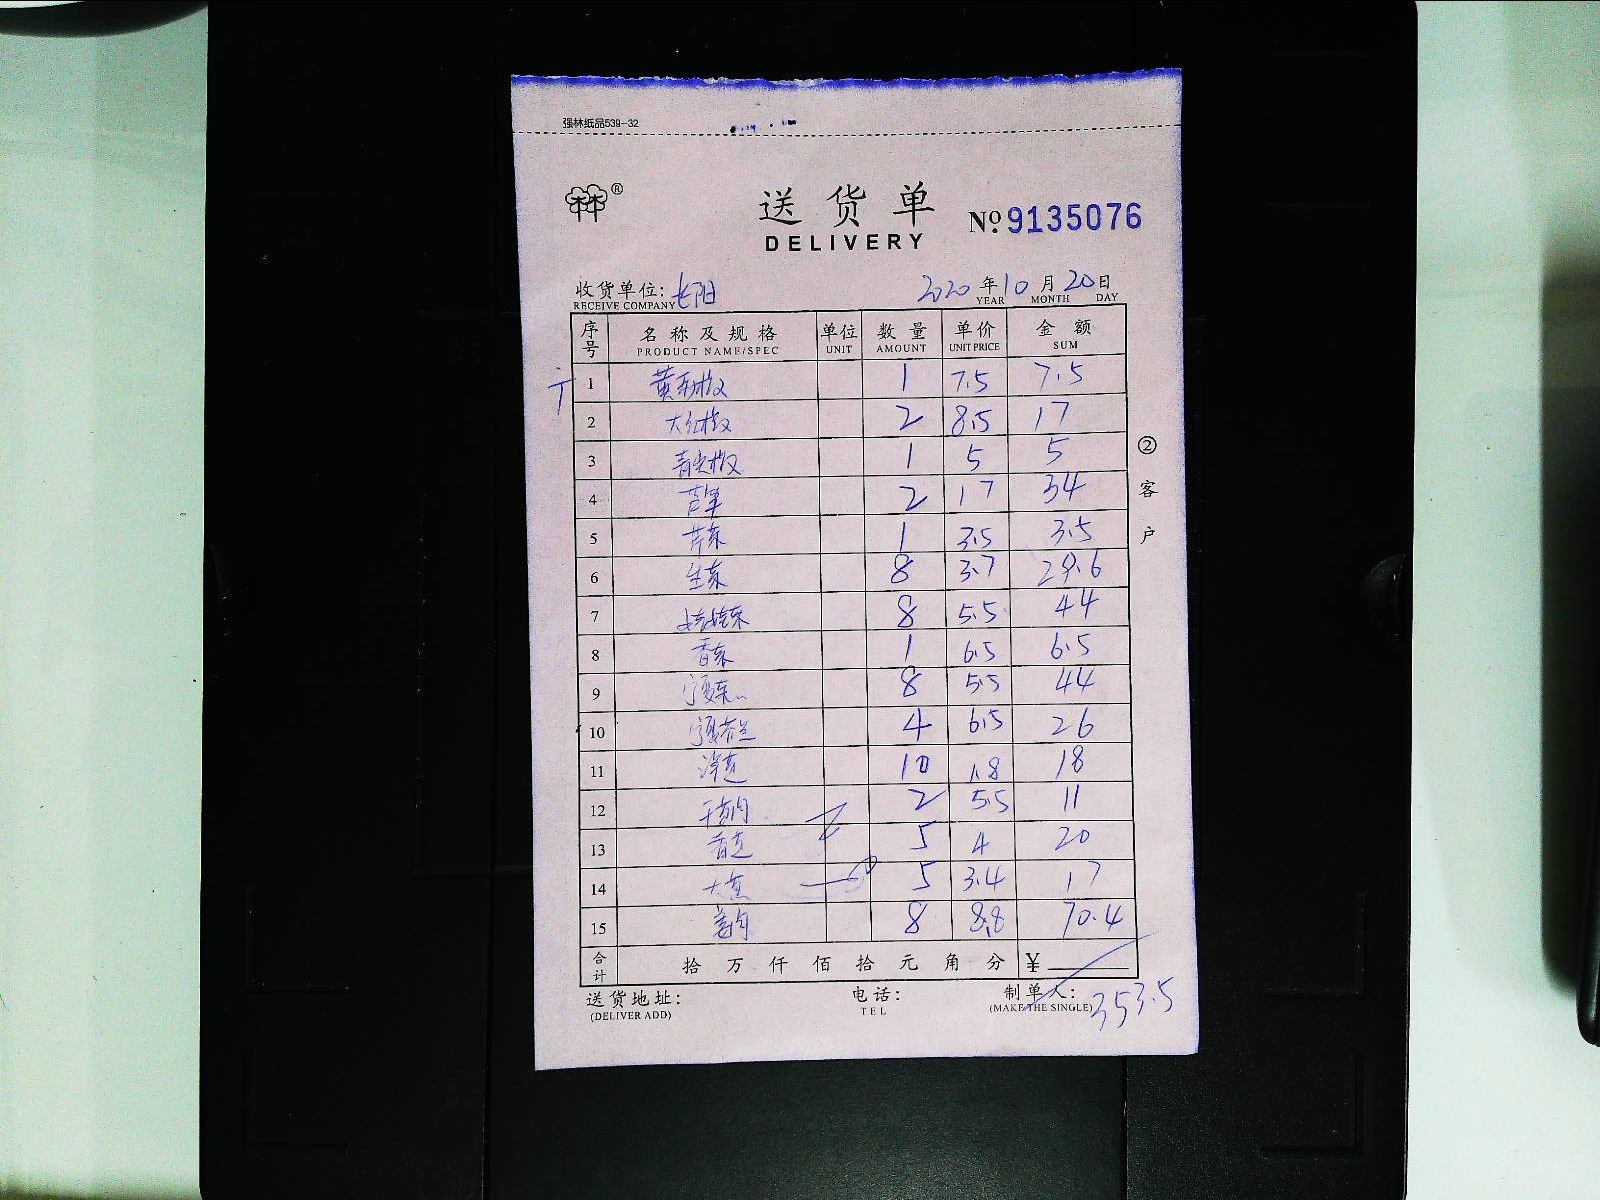 强林纸品539-32
林®
送货单
DELIVERY
№ 9135076
收货单位: 长阳 2020年10月20日
RECEIVE COMPANY YEAR MONTH DAY
序号 名称及规格 单位 数量 单价 金额
PRODUCT NAME/SPEC UNIT AMOUNT UNIT PRICE SUM
1 黄彩椒 1 7.5 7.5
2 大红椒 2 8.5 17
3 青尖椒 1 5 5
4 芦笋 2 17 34
5 芹菜 1 3.5 3.5
6 生菜 8 3.7 29.6
7 娃娃菜 8 5.5 44
8 香菜 1 6.5 6.5
9 宁夏菜心 8 5.5 44
10 宁夏芥兰 4 6.5 26
11 洋芋 10 1.8 18
12 2 5.5 11
13 5 4 20
14 大葱 5 3.4 17
15 姜肉 8 8.8 70.4
合计 拾 万 仟 佰 拾 元 角 分 ¥
353.5
送货地址: 电话: 制单人:
(DELIVER ADD) TEL (MAKE THE SINGLE)
②客户